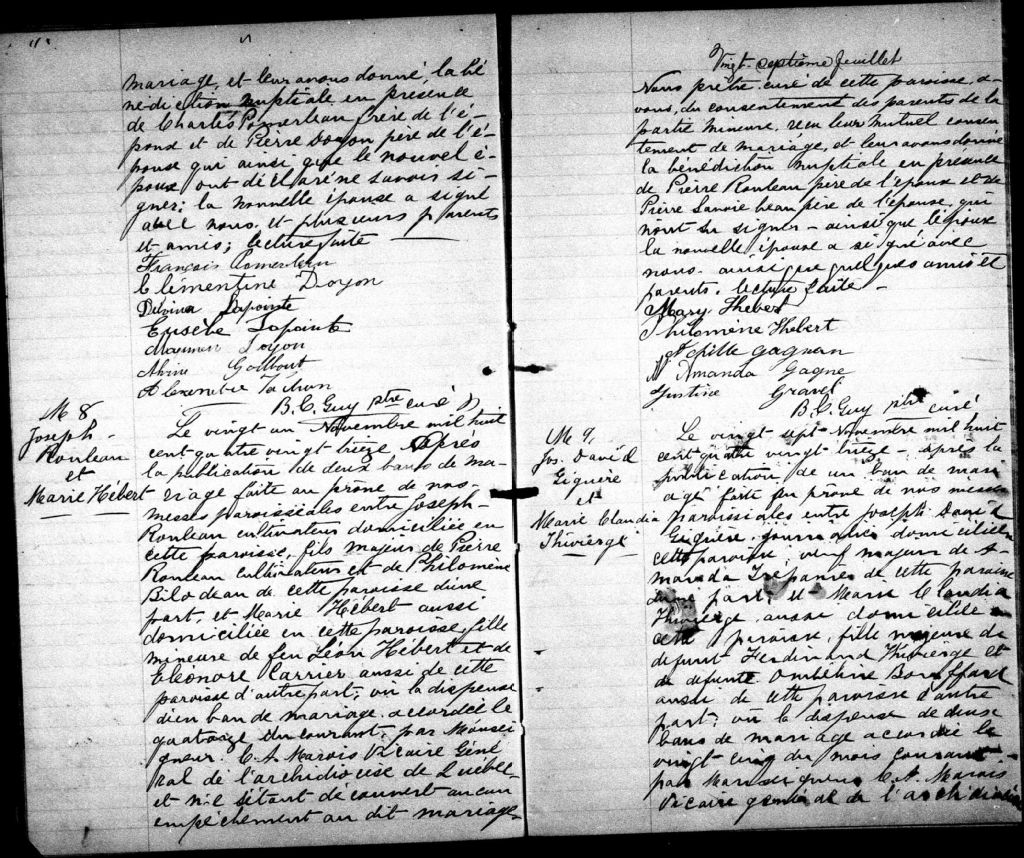 mariage, et leur avons donné, la bé
nédiction nuptiale en presence
de Charles Pomerleau frère de l'é-
poux et de Pierre Doyon père de l'é-
pouse qui ainsi que le nouvel é-
poux ont déclaré ne savoir si-
gner; la nouvelle épouse a signé
avec nous, et plusieurs parents
et amis; lecture faite
François Pomerleau
Clémentine Doyon
Délvina Lapointe
Eusèbe Lapointe
Doyon
Alvine Galbout
Alexandre
B. C. Guy ptre curé
M 8
Joseph-
Rouleau
et
Marie Hébert
Le vingt un Novembre mil huit
cent quatre vingt trèze, après
la publication de deux bans de ma-
riage faite au prône de nos-
messes paroissiales entre Joseph-
Rouleau cultivateur domiciliée en
cette paroisse, fils majeur de Pierre
Rouleau cultivateur et de Philomène
Bilodeau de cette paroisse d'une
part, et Marie Hébert aussi
domiciliée en cette paroisse, fille
mineure de feu Léon Hébert et de
Eléonore Carrier aussi de cette
paroisse d'autre part; vu la dispense
d'un ban de mariage accordée le
quatorze du courant, par Monsei
gneur C. A. Marois Vicaire Géné
ral de l'archidiocèse de Québec
et n'e s'étant découvert aucun
empêchement au dit mariage
Vingt-septième feuillet
Nous prêtre curé de cette paroisse, a-
vons, du consentement des parents de la
partie mineure, reçu leur mutuel consen
tement de mariage, et leur avons donné
la bénédiction nuptiale en presence
de Pierre Rouleau père de l'époux et de
Pierre Savoie beau père de l'épouse, qui
n'ont su signer - ainsi que l'époux
la nouvelle épouse a signé avec
nous - ainsi que quelques amis et
parents, lecture faite -
Mary Hebert
Philomène Hebert
Achille Gagnon
Amanda Gagne
Justine Gravel
B. C. Guy ptre curé
M 9,
Jos. David
Giguère
et
Marie Claudia
Thivierge
Le vingt sept Novembre mil huit
cent quatre vingt trèze - après la
publication de un ban de mari
age faite au prône de nos messes
paroissiales entre Joseph David
Giguère, journalier domicilié en
cette paroisse veuf majeur de A-
manda Trépanier de cette paroisse
d'une part, et Marie Claudia
Thivierge aussi domiciliée en
cette paroisse, fille majeure de
defunt Ferdinand Thivierge et
de defunte Ombéline
aussi de cette paroisse d'autre
part; vu la dispense de deux
bans de mariage accordée le
vingt cinq du mois courant -
par Monseigneur C. A. Marois
Vicaire général de l'archidiocèse